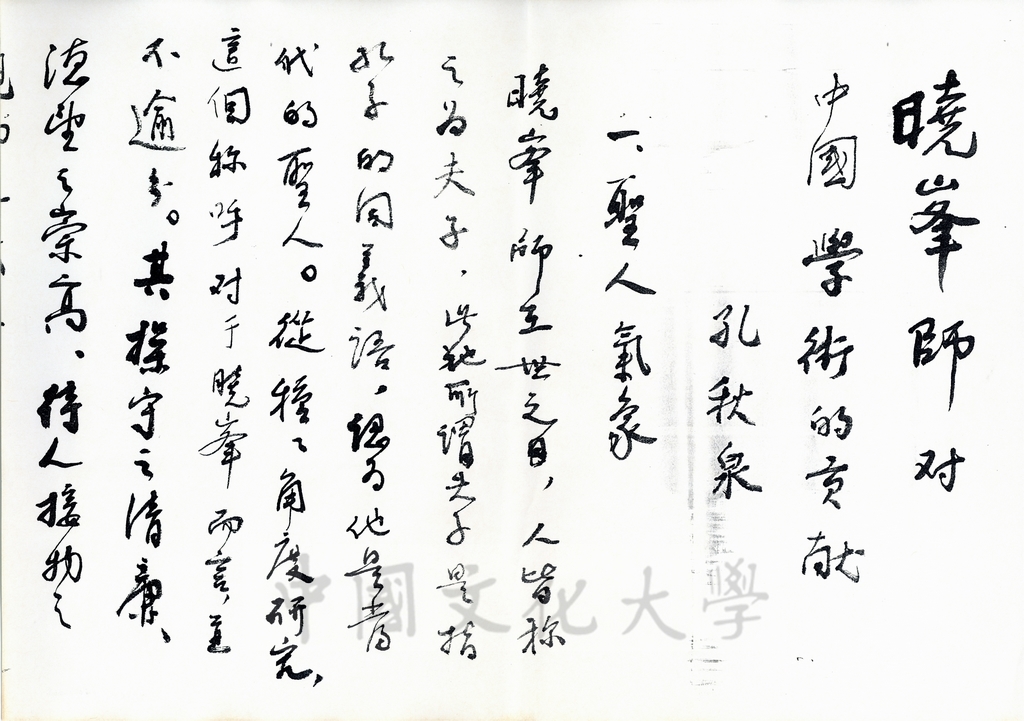 曉峯師对
中國學術的贡献
孔秋泉
一、聖人氣象
曉峯師在世之日，人皆称
之为夫子，此地所謂夫子是指
孔子的同義語，認为他是當
代的聖人。從種々角度研究，
這個称呼对于曉峯而言，並
不逾分。其操守之清廉、
德望之崇高、待人接物之
中國文化大學